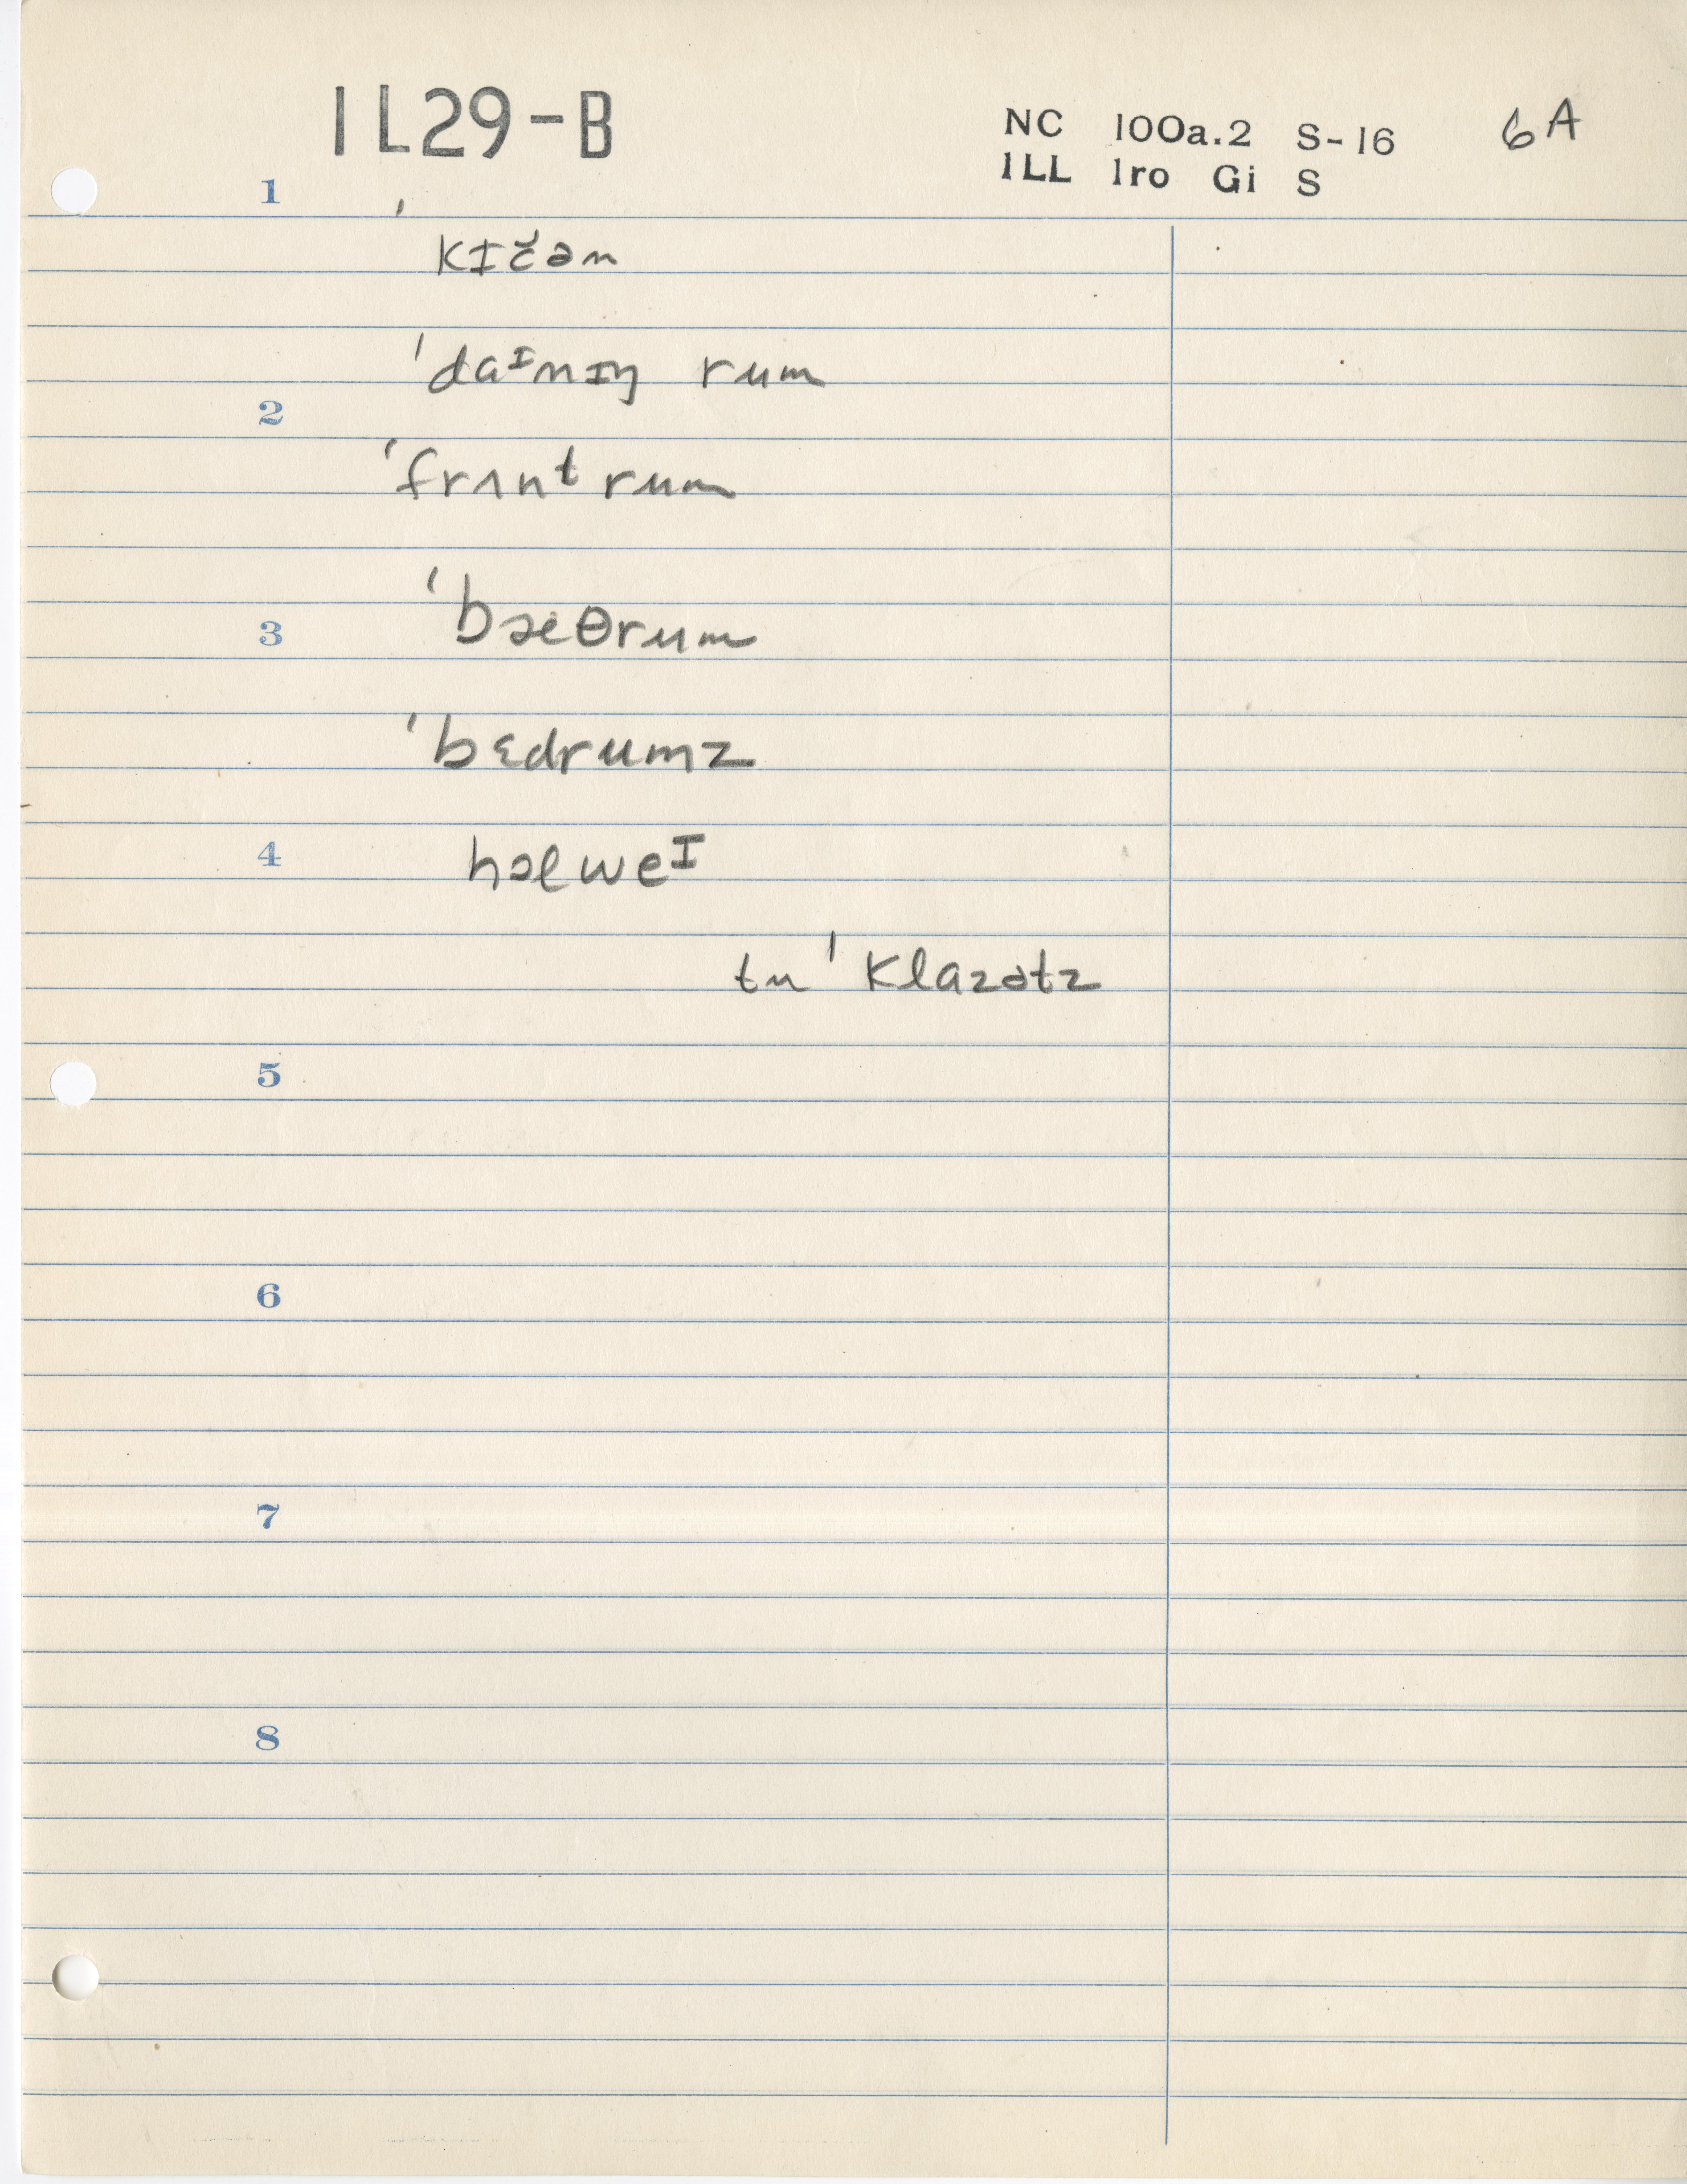 IL29-B
NC 100a.2 S-16 6A
ILL Iro Gi S
1
ˈkɪčən
ˈdaᶦnɪŋ rum
2
ˈfrʌnt rum
3 ˈbæθrum
ˈbɛdrumz
4 hɔlweᶦ
tu ˈklazətz
5
6
7
8